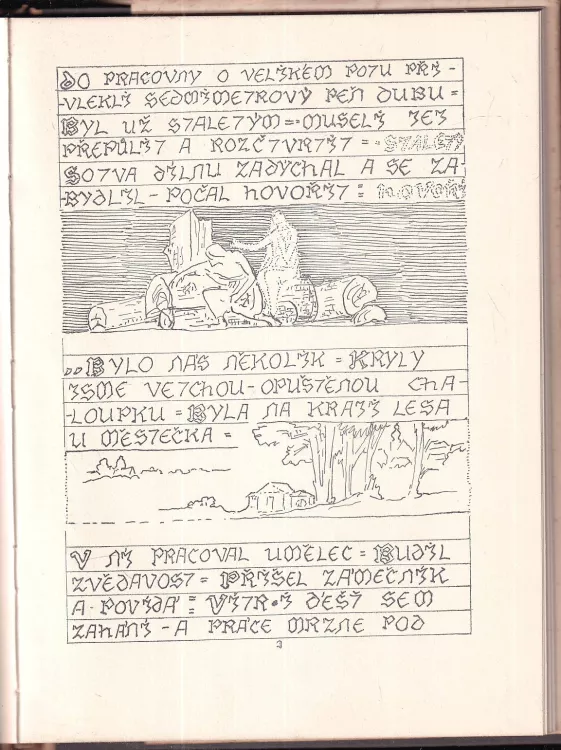 DO PRACOVNY O VELIKÉM POTU PŘI-
-VLEKLI SEDMIMETROVÝ PEŇ DUBU =
BYL UŽ STALETÝM =- MUSELI JEJ
PŘEPŮLIT A ROZČTVRTIT = STALETÝ
SOTVA DÍLNU ZADÝCHAL A SE ZA-
BYDLIL - POČAL HOVOŘIT = HOVOŘI
..BYLO NÁS NĚKOLIK = KRYLY
JSME VETCHOU - OPUŠTĚNOU CHA-
-LOUPKU = BYLA NA KRAJI LESA
U MĚSTEČKA =
V NÍ PRACOVAL UMĚLEC = BUDIL
ZVĚDAVOST = PŘIŠEL ZÁMEČNÍK
A POVÍDÁ = VÍTR I DÉŠŤ SEM
ZAHÁNÍ - A PRÁCE MRZNE POD